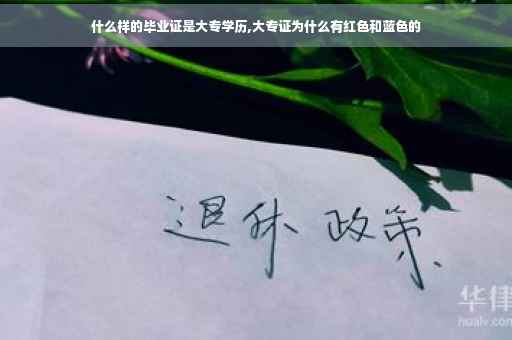 什么样的毕业证是大专学历,大专证为什么有红色和蓝色的
退休 政策
华律
hualv.com